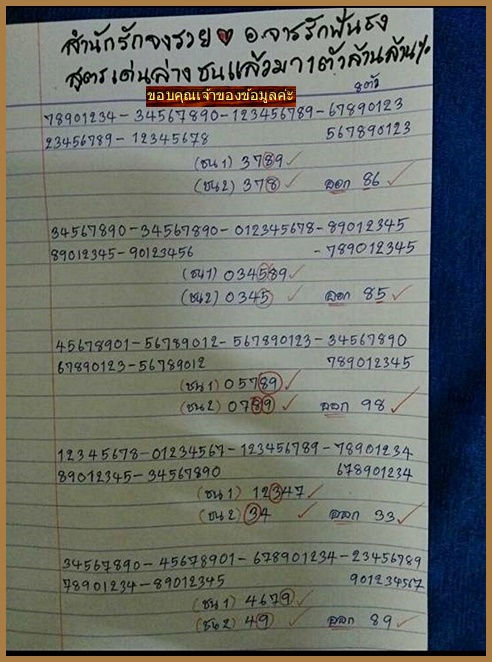 สำนักรักจงรวย อ.จารรักฟันธง
สูตรเด่นล่างชนแล้วมา 1 ตัวล้านล้าน%
ขอบคุณเจ้าของข้อมูลค่ะ
8ตัว
78901234-34567890-123456789-67890123
23456789-12345678 567890123
(ชน1) 3789
(ชน2) 378 ออก 86
34567890-34567890-012345678-89012345
89012345-90123456 -789012345
(ชน1) 034589
(ชน2) 0345 ออก 85
45678901-56789012-567890123-34567890
67890123-56789012 789012345
(ชน1) 05789
(ชน2) 0789 ออก 98
12345678-01234567-123456789-78901234
89012345-34567890 678901234
(ชน1) 12347
(ชน2) 34 ออก 33
34567890-45678901-678901234-23456789
78901234-89012345 901234567
(ชน1) 4679
(ชน2) 49 ออก 89